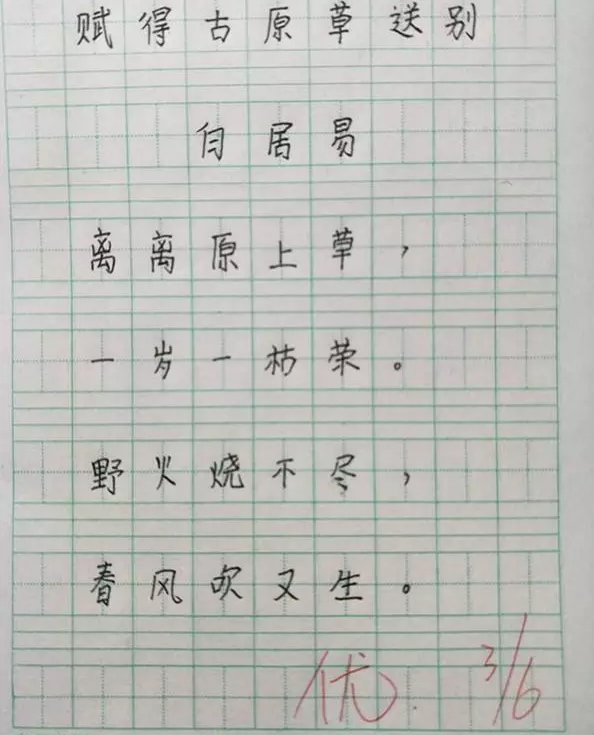 赋得古原草送别
白居易
离离原上草，
一岁一枯荣。
野火烧不尽，
春风吹又生。
优 3/6